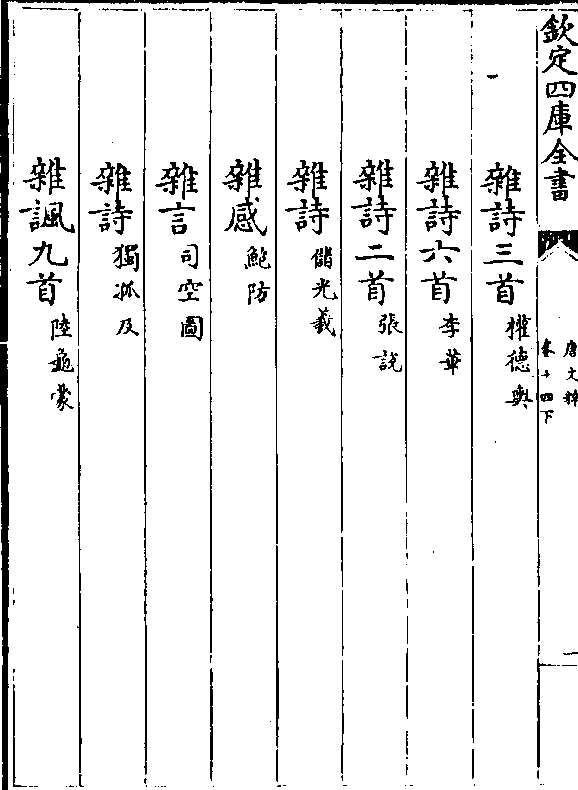 欽定四庫全書
唐文粹
卷十四下
一
雜詩三首 權德輿
雜詩六首 李華
雜詩二首 張說
雜詩 儲光羲
雜感 鮑防
雜言 司空圖
雜詩 獨孤及
雜諷九首 陸龜蒙